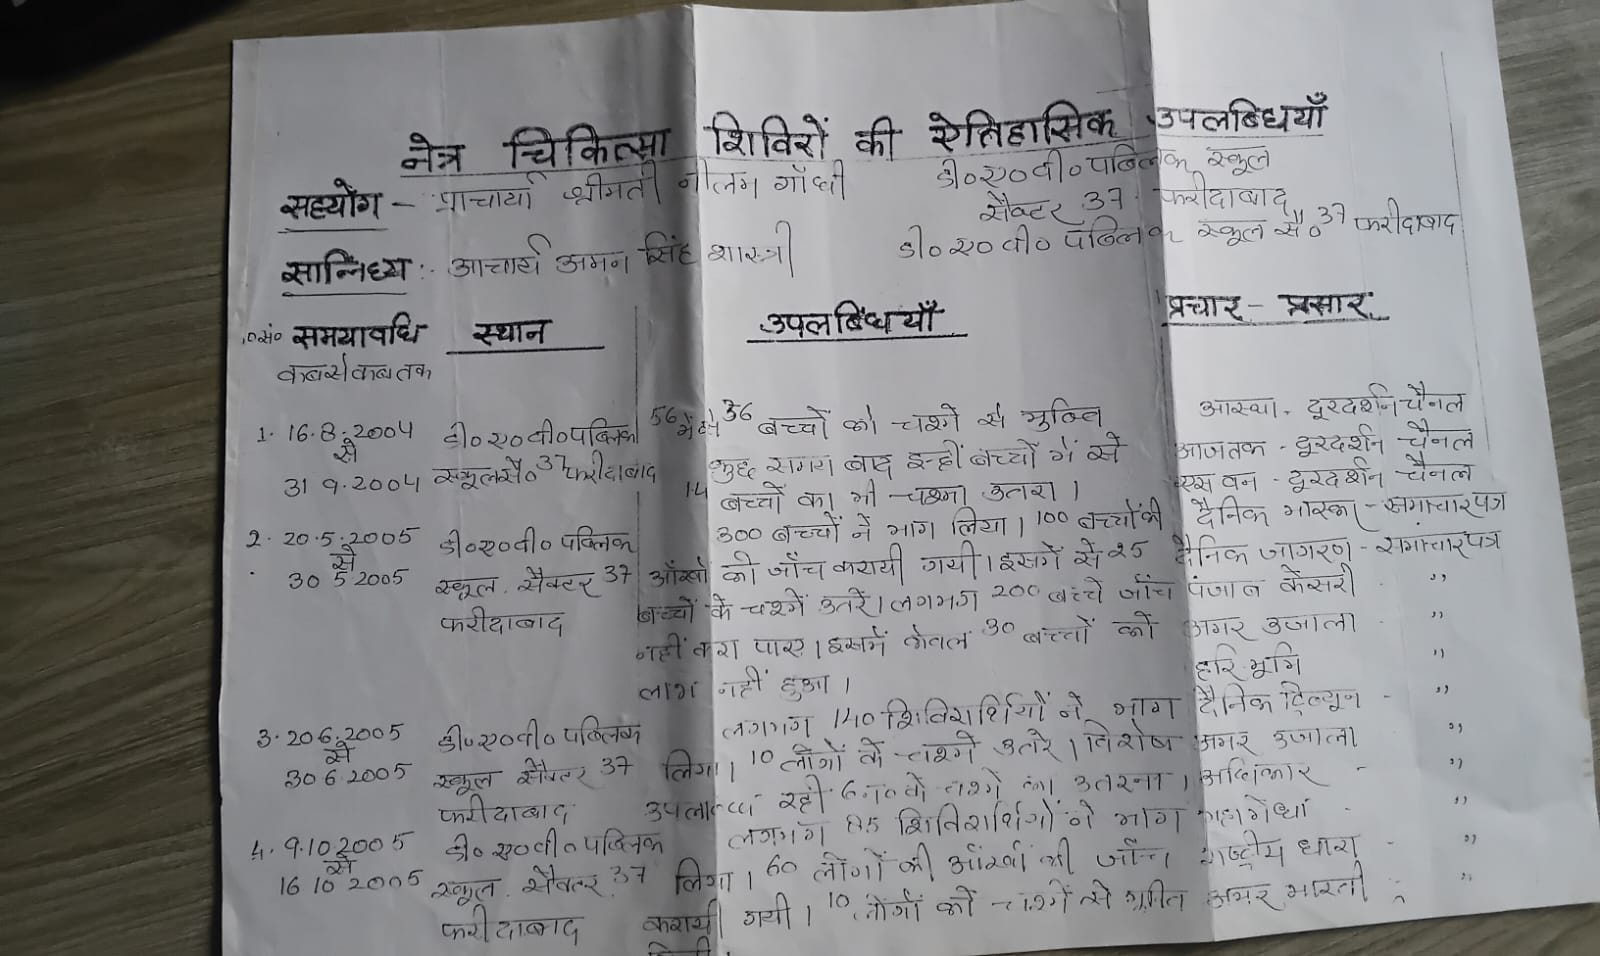 नेत्र चिकित्सा शिविरों की ऐतिहासिक उपलब्धियाँ
सहयोग - प्राचार्या श्रीमती नीलम गाँधी डी०ए०वी० पब्लिक स्कूल
सैक्टर 37 फरीदाबाद
सान्निध्य :- आचार्य अमन सिंह शास्त्री डी०ए०वी० पब्लिक स्कूल सै० 37 फरीदाबाद
समयावधि स्थान उपलब्धियाँ प्रचार - प्रसार
कबसे कबतक
1. 16.8.2004 डी०ए०वी० पब्लिक 56 में से 36 बच्चों को चश्मे से मुक्ति आस्था - दूरदर्शन चैनल
से
31 9.2004 स्कूल सै० 37 फरीदाबाद कुछ समय बाद इन्हीं बच्चों में से आजतक - दूरदर्शन चैनल
14 बच्चों का भी चश्मा उतरा। एस वन - दूरदर्शन चैनल
2. 20.5.2005 डी०ए०वी० पब्लिक 300 बच्चों ने भाग लिया। 100 बच्चों की दैनिक भास्कर - समाचार पत्र
से
30 5 2005 स्कूल. सैक्टर 37 आँखों की जाँच करायी गयी। इसमें से 25 दैनिक जागरण - समाचार पत्र
फरीदाबाद बच्चों के चश्में उतरें। लगभग 200 बच्चे जाँच पंजाब केसरी - ,,
नहीं करा पाए। इसमें केवल 30 बच्चों को अमर उजाला - ,,
लाभ नहीं हुआ। हरि भूमि ,,
3. 20 6.2005 डी०ए०वी० पब्लिक लगभग 140 शिविरार्थियों ने भाग दैनिक ट्रिब्यून - ,,
से
30 6 2005 स्कूल सैक्टर 37 लिया। 10 लोगों के चश्मे उतरे। विशेष अमर उजाला ,,
फरीदाबाद रही चश्में का उतरना। - ,,
4. 9.10 2005 डी०ए०वी० पब्लिक लगभग 85 शिविरार्थियों ने भाग - ,,
से
16 10 2005 स्कूल. सैक्टर 37 लिया। 60 लोगों की आँखों की जाँच राष्ट्रीय धारा - ,,
फरीदाबाद करायी गयी। 10 लोगों को चश्में से मुक्ति अमर भारती - ,,